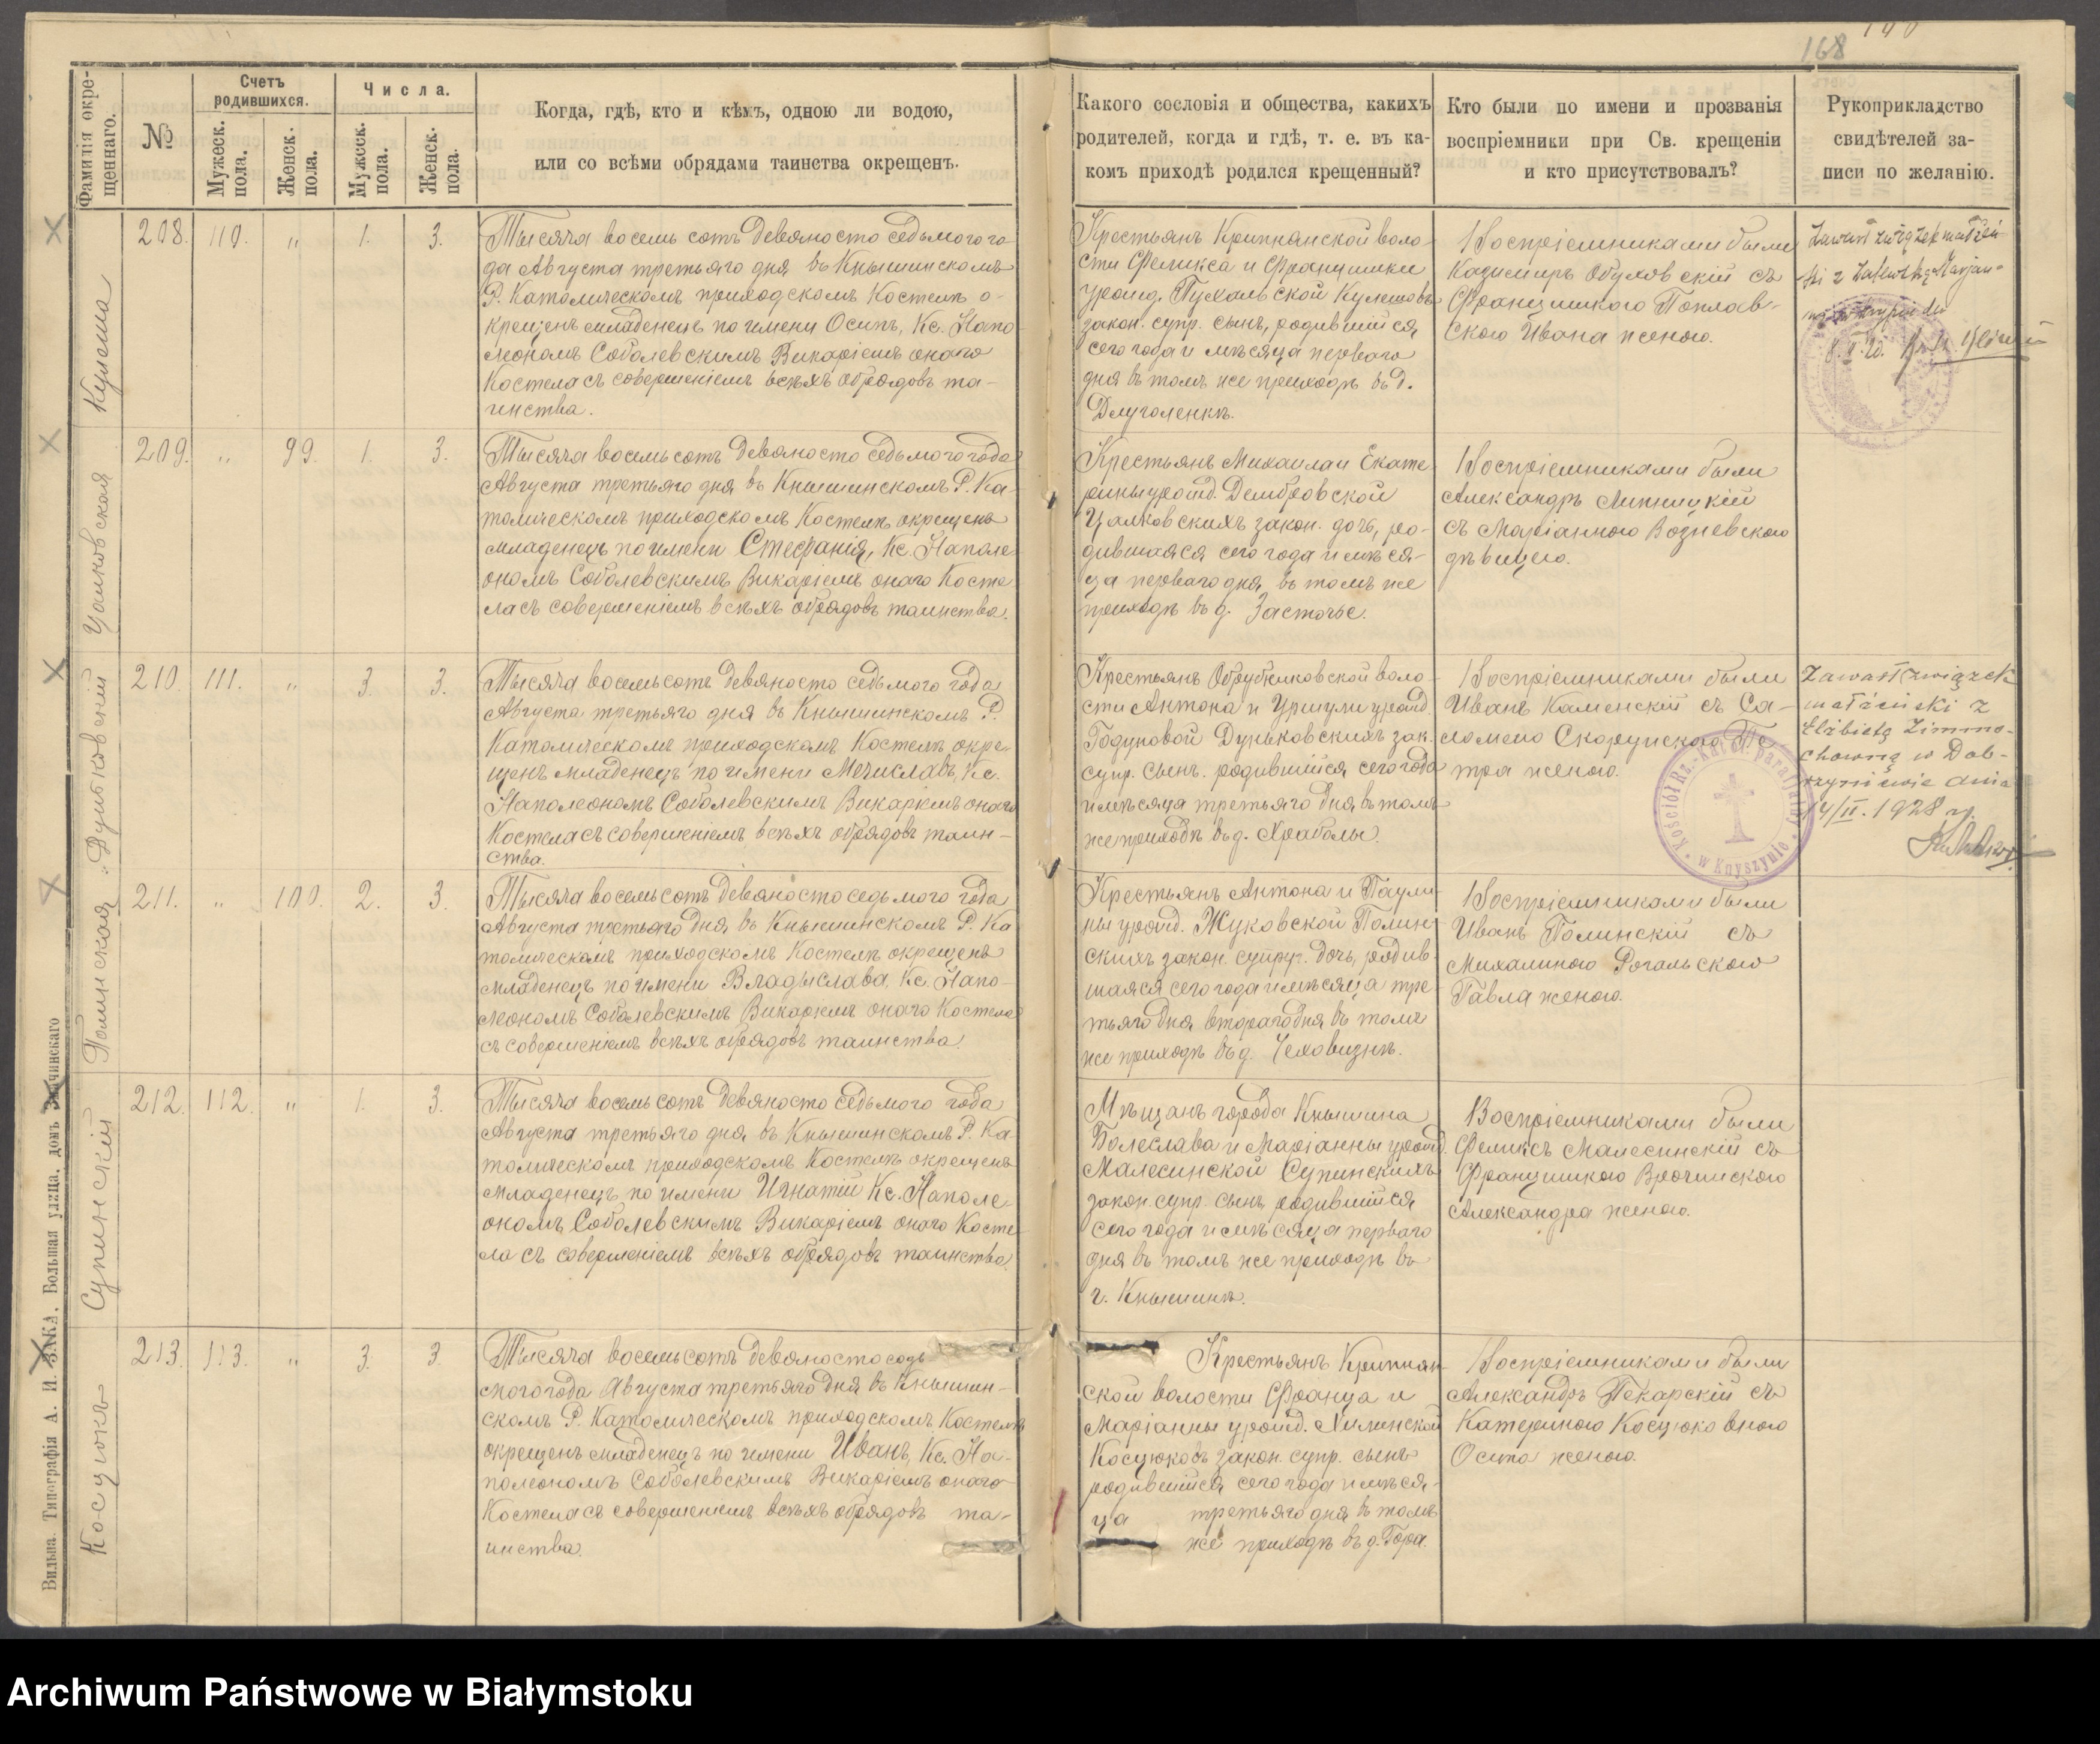 168
Фамилія окре-
щеннаго.
№
Счетъ
родившихся.
Мужеск.
пола.
Женск.
пола.
Числа.
Мужеск.
пола.
Женск.
пола.
Когда, гдѣ, кто и кѣмъ, одною ли водою,
или со всѣми обрядами таинства окрещенъ.
Какого сословія и общества, какихъ
родителей, когда и гдѣ, т. е. въ ка-
комъ приходѣ родился крещенный?
Кто были по имени и прозванія
воспріемники при Св. крещеніи
и кто присутствовалъ?
Рукоприкладство
свидѣтелей за-
писи по желанію.
Кулеша
208. 110. „ 1. 3.
Тысяча восемь сотъ девяносто седьмого го
да Августа третьяго дня въ Кнышинскомъ
Р. Католическомъ приходскомъ Костелѣ о-
крещенъ младенецъ по имени Осипъ, Кс. Напо
леономъ Соболевскимъ Викаріемъ онаго
Костела съ совершеніемъ всѣхъ обрядовъ та-
инства.
Крестьянъ Крипнянской воло
сти Феликса и Францишки
урожд. Пухальской Кулешовъ
закон. супр. сынъ, родившійся
сего года и мѣсяца перваго
дня въ томъ же приходѣ въ д.
Длуголенкѣ.
Воспріемниками были
Казимиръ Обуховскій съ
Францишкою Поплав-
скою Ивана женою.
Цалковская
209. „ 99. 1. 3.
Тысяча восемьсотъ девяносто седьмого года
Августа третьяго дня въ Кнышинскомъ Р. Ка-
толическомъ приходскомъ Костелѣ окрещенъ
младенецъ по имени Стефанія, Кс. Наполе
ономъ Соболевскимъ Викаріемъ онаго Косте
ла съ совершеніемъ всѣхъ обрядовъ таинства.
Крестьянъ Михаила и Екате
рины урожд. Домбровской
Цалковскихъ закон. дочь, ро-
дившаяся сего года и мѣся-
ца перваго дня, въ томъ же
приходѣ въ д. Засточье.
Воспріемниками были
Александръ Липницкій
съ Маріанною Возневскою
дѣвицею.
Дунковскій
210. 111. „ 3. 3.
Тысяча восемьсотъ девяносто седьмого года
Августа третьяго дня въ Кнышинскомъ Р.
Католическомъ приходскомъ Костелѣ окре-
щенъ младенецъ по имени Мечиславъ, Кс.
Наполеономъ Соболевскимъ Викаріемъ онаго
Костела съ совершеніемъ всѣхъ обрядовъ таин-
ства.
Крестьянъ Обрубниковской воло-
сти Антона и Уршули урожд.
Годуновой Дуньковскихъ зак.
супр. сынъ. родившійся сего года
и мѣсяца третьяго дня въ томъ
же приходѣ въ д. Храболы.
Воспріемниками были
Иванъ Каменскій съ Са-
ломеею Скорупскою Пе
тра женою.
Zawarł związek
małżeński z
Elżbietą Zimno-
chówną w Dob-
rzyniewie dnia
14/II. 1928 r.
Kościół Rz.-Kat. parafjalny
w Knyszynie
Полинская
211. „ 100. 2. 3.
Тысяча восемьсотъ девяносто седьмого года
Августа третьяго дня въ Кнышинскомъ Р. Ка
толическомъ приходскомъ Костелѣ окрещенъ
младенецъ по имени Владыслава, Кс. Напо-
леономъ Соболевскимъ Викаріемъ онаго Костела
съ совершеніемъ всѣхъ обрядовъ таинства.
Крестьянъ Антона и Паули-
ны урожд. Жуковской Полин
скихъ закон. супруг. дочь, родив-
шаяся сего года и мѣсяца тре-
тьяго дня второго дня въ томъ
же приходѣ въ д. Чеховизнѣ.
Воспріемниками были
Иванъ Полинскій съ
Михалиною Рогальскою
Павла женою.
Супинскій
212. 112. „ 1. 3.
Тысяча восемьсотъ девяносто седьмого года
Августа третьяго дня въ Кнышинскомъ Р. Ка
толическомъ приходскомъ Костелѣ окрещенъ
младенецъ по имени Игнатій Кс. Наполе
ономъ Соболевскимъ Викаріемъ онаго Косте
ла съ совершеніемъ всѣхъ обрядовъ таинства.
Мѣщанъ города Кнышина
Болеслава и Маріанны урожд.
Малесинской Супинскихъ
закон. супр. сынъ родившійся
сего года и мѣсяца перваго
дня въ томъ же приходѣ въ
г. Кнышинѣ.
Воспріемниками были
Феликсъ Малесинскій съ
Францишкою Врочинскою
Александра женою.
Косцюкъ
213. 113. „ 3. 3
Тысяча восемьсотъ девяносто седь
мого года Августа третьяго дня въ Кнышин-
скомъ Р. Католическомъ приходскомъ Костелѣ
окрещенъ младенецъ по имени Иванъ, Кс. На-
полеономъ Соболевскимъ Викаріемъ онаго
Костела съ совершеніемъ всѣхъ обрядовъ та-
инства.
Крестьянъ Крипнян-
ской волости Франца и
Маріанны урожд. Хилинской
Косцюковъ закон. супр. сынъ
родившійся сего года и мѣся-
ца третьяго дня въ томъ
же приходѣ въ д. Гора.
Воспріемниками были
Александръ Пекарскій съ
Катериною Косцюковною
Осипа женою.
Вильна. Типографія А. И. ЗАКА, Большая улица, домъ Завчинскаго
Archiwum Państwowe w Białymstoku